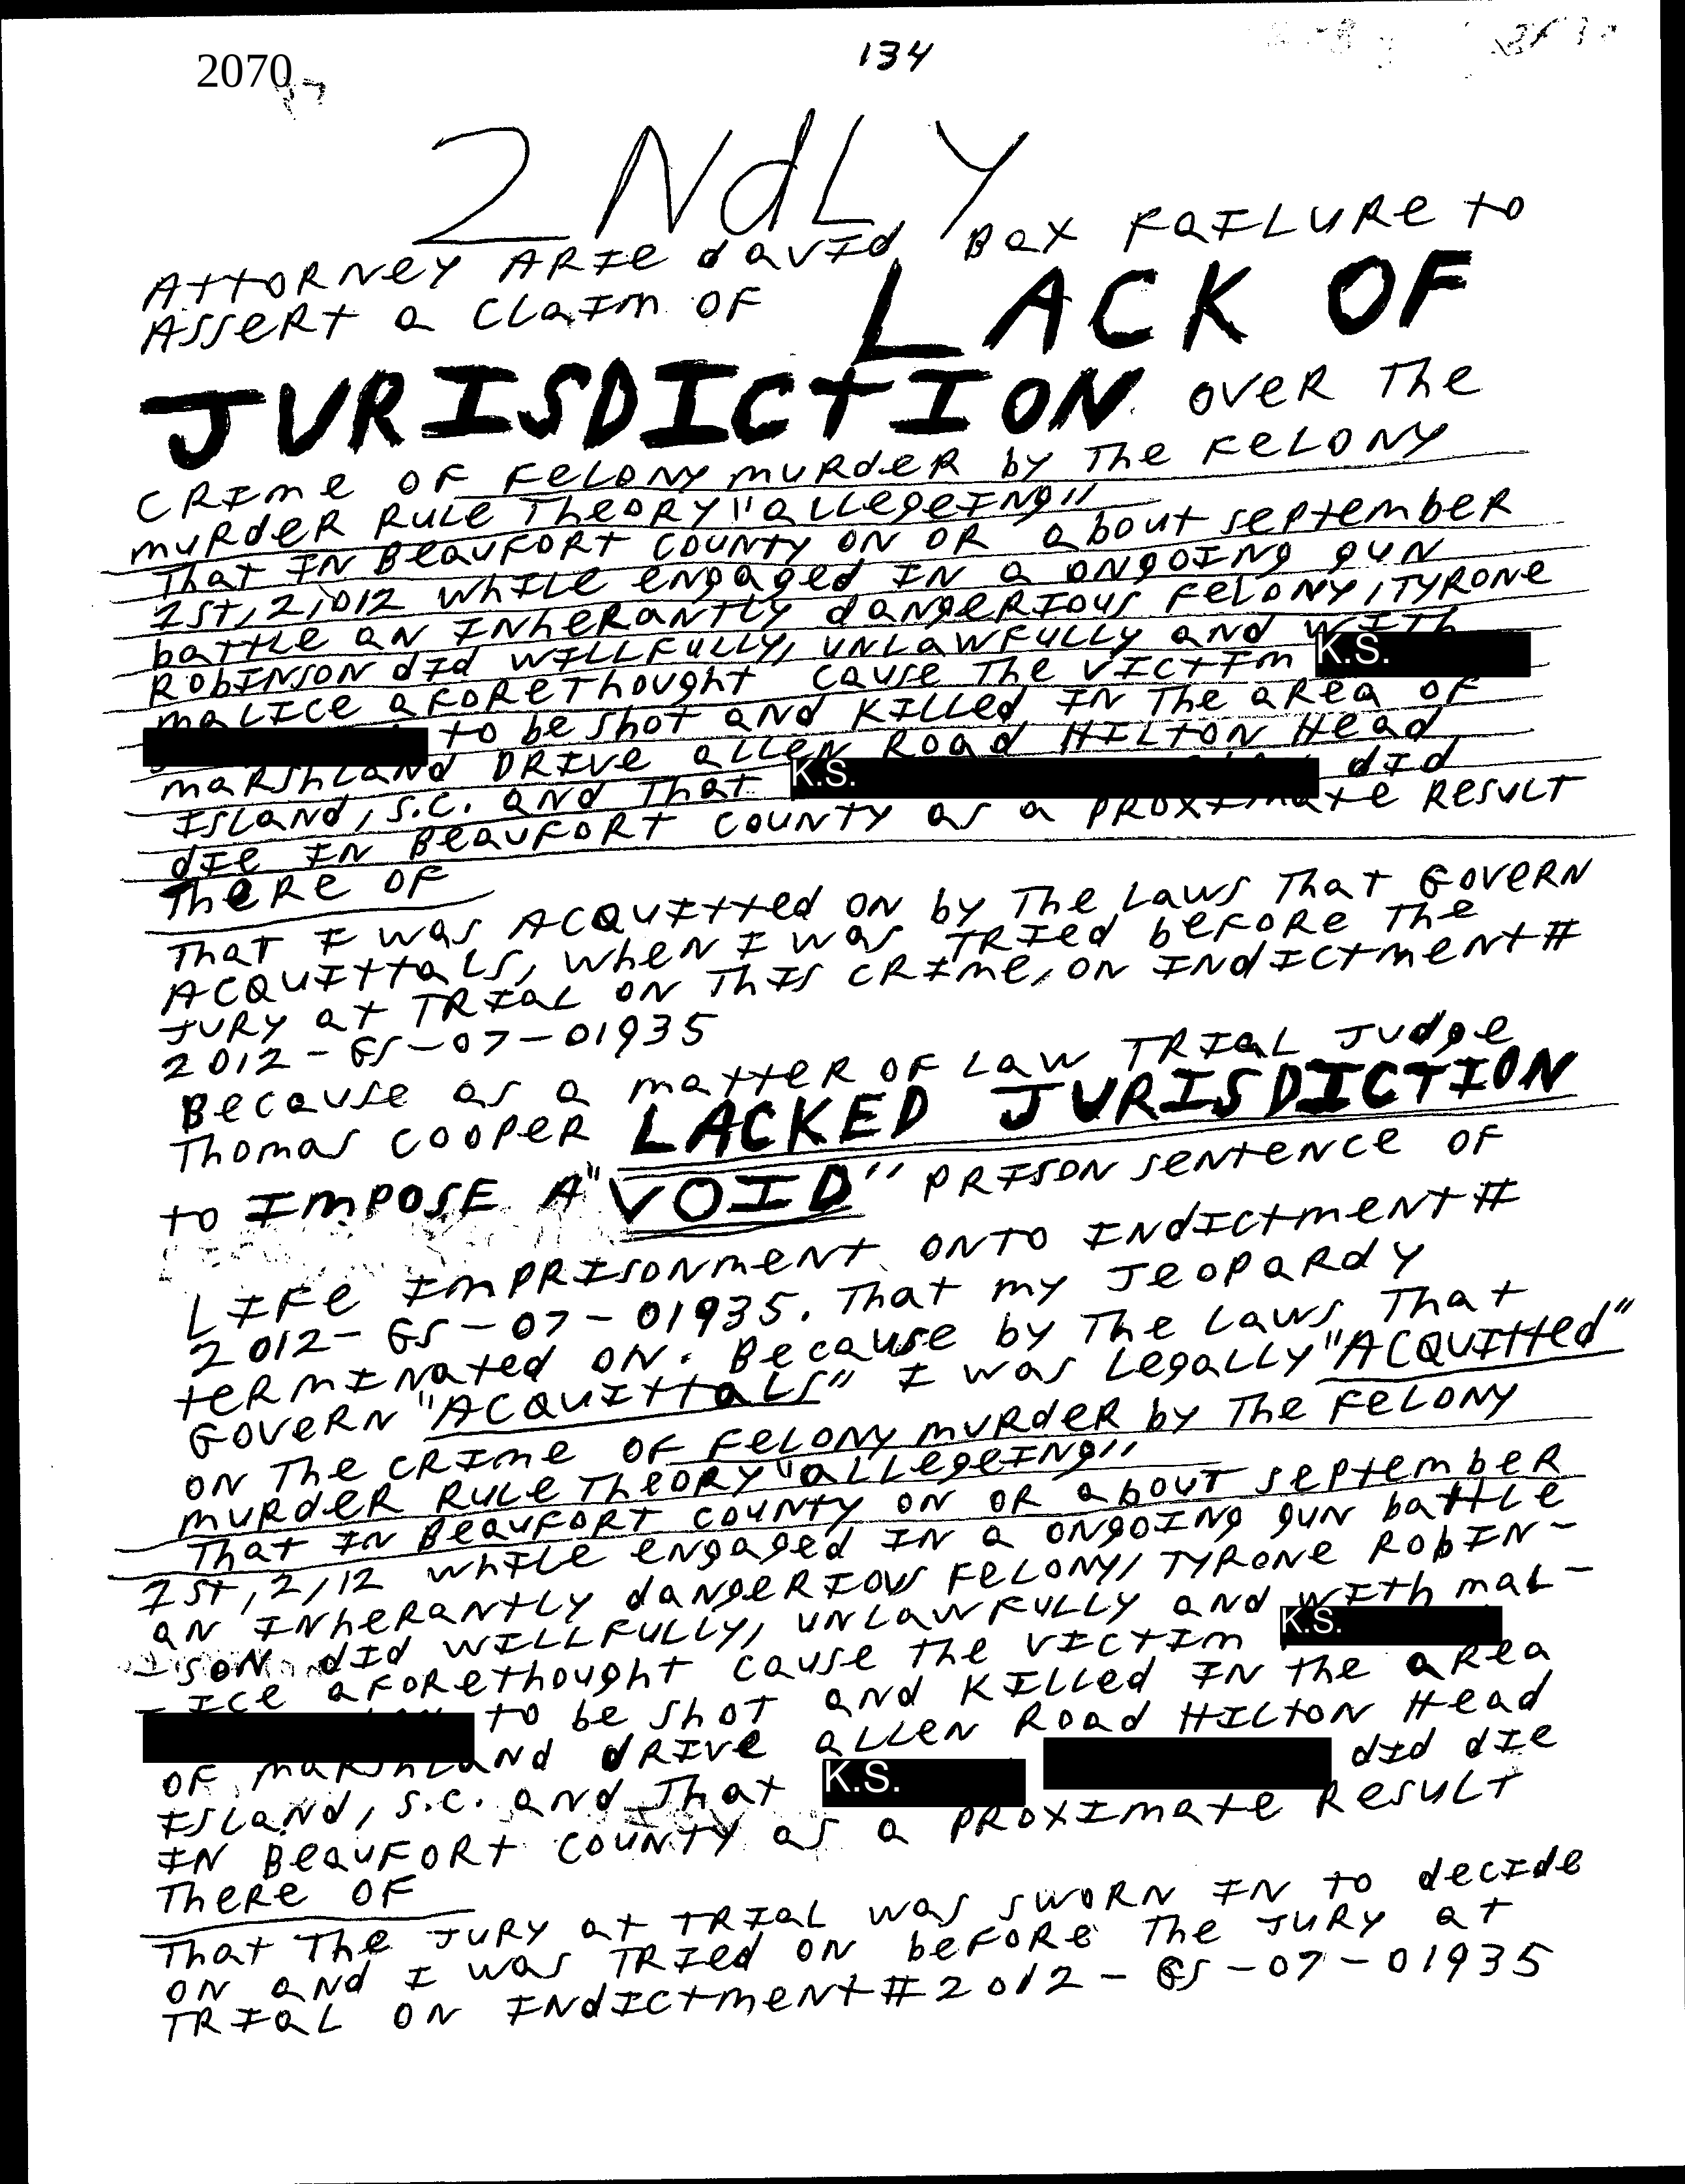 2070
134
2NdLY
ATTORNEY ARIE david BAX FAILURE to
ASSERT a CLAIM OF LACK OF
JURISDICTION OVER The
CRIME OF FELONY MURDER by The FELONY
MURDER RULE THEORY "ALLEGEING"
That IN BEAUFORT COUNTY ON OR about september
1ST, 2,012 WHILE ENGAGED IN a ONGOING GUN
battle aN INHERANTLY daNGERIOUS FELONY, TYRONE
RobINSON dId WILLFULLY, UNLAWFULLY aNd WITH
maLICE aFOREThought cause The VICTIM K.S.
to be shot aNd KILLED IN The area OF
marshLaNd DRIVE aLLEN Road HILTON Head
ISLaNd, S.C. aNd That K.S. dId
dIe IN BeauFORT COUNTY as a PROXImate Result
There OF
That I was ACQUITted ON by The Laws That GOVERN
ACQUITtaLS, when I was TRIed beFORE The
JURY at TRIaL ON ThIS CRIme, ON INdICtmeNt#
2012-GS-07-01935
Because as a matteR OF Law TRIaL Judge
Thomas COOPER LACKED JURISDICTION
to IMPOSE A "VOID" PRISON SENTENCE OF
LIFE IMPRISONMENT ONTO INdICtmeNt#
2012-GS-07-01935. That my JeopaRdY
teRmINated ON. Because by The Laws That
GOVERN "ACQUITtaLS" I was LegaLLY "ACQUITted"
ON The CRIme OF FELONY MURDER by The FELONY
MURDER RULE THEORY "ALLEGEING"
That IN BeauFORT COUNTY ON OR about september
1ST, 2,12 WHILE eNgaged IN a ONGOING gun battle
aN INHERANTLY daNgeRIOUS FELONY, TYRONE RobIN-
-SON dId WILLFULLY, UNLAWFULLY aNd WITH maL-
-Ice aFOREThought cause the VICTIM K.S.
to be shot aNd KILLed IN the area
OF marshLaNd dRIVe aLLEN Road HILTON Head
ISLaNd, S.C. aNd That K.S. dId dIe
IN BeauFORT COUNTY as a PROXImate Result
There OF
That The JURY at TRIaL was SWORN IN to decIde
ON aNd I was TRIed ON beFORE The JURY at
TRIaL ON INdICtmeNt#2012-GS-07-01935